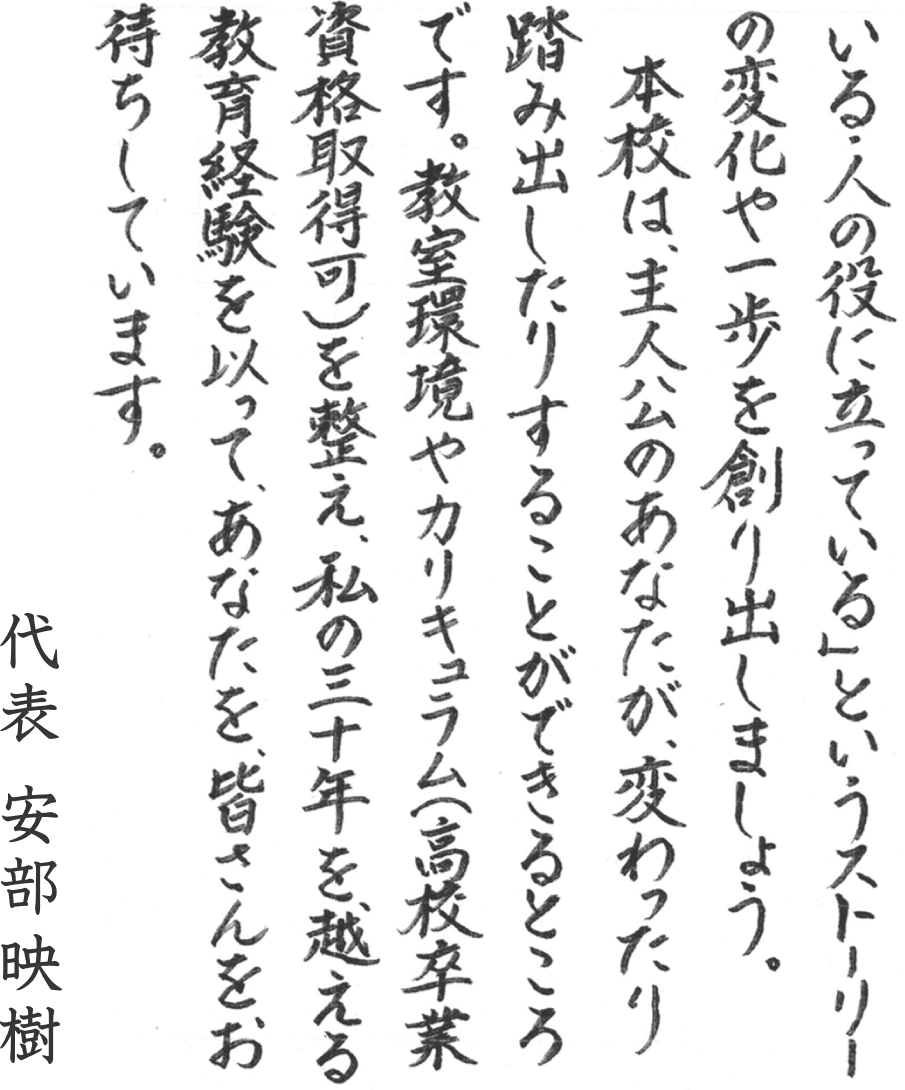 いる・人の役に立っている」というストーリー
の変化や一歩を創り出しましょう。
本校は、主人公のあなたが、変わったり
踏み出したりすることができるところ
です。教室環境やカリキュラム(高校卒業
資格取得可)を整え、私の三十年を、越える
教育経験を以って、あなたを、皆さんをお
待ちしています。
代表 安部映樹